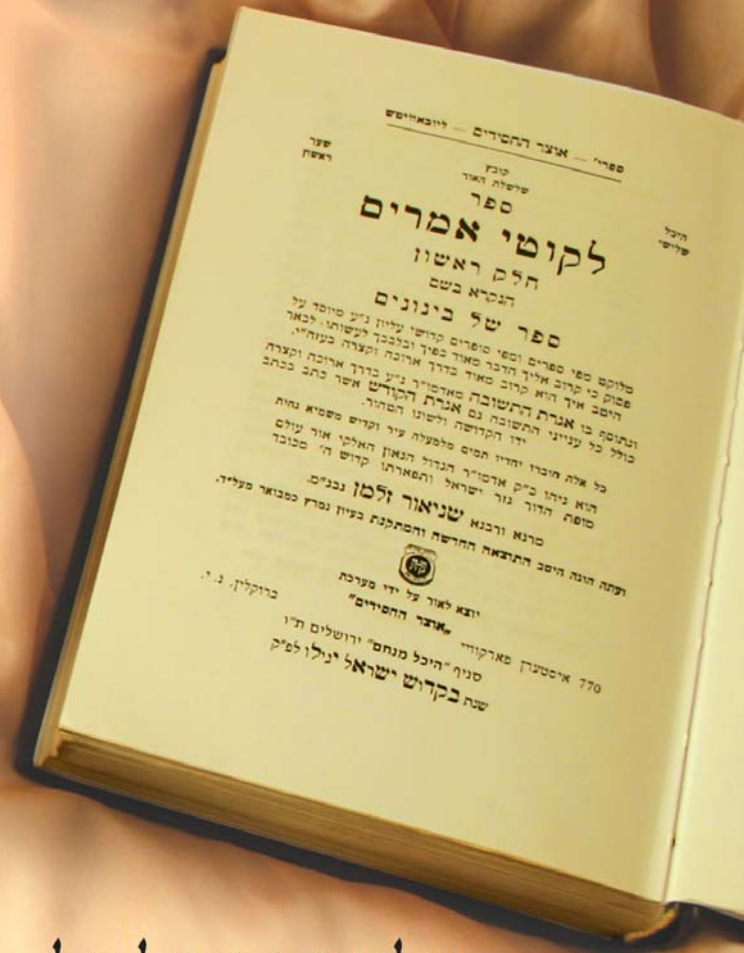 ספרי׳ — אוצר החסידים — ליובאוויטש
קובץ
שלשלת האור
שער
ראשון
היכל
שלישי
ספר
לקוטי אמרים
חלק ראשון
הנקרא בשם
ספר של בינונים
מלוקט מפי ספרים ומפי סופרים קדושי עליון נ״ע מיוסד על
פסוק כי קרוב אליך הדבר מאוד בפיך ובלבבך לעשותו. לבאר
היטב איך הוא קרוב מאוד בדרך ארוכה וקצרה בעזה״י.
ונתוסף בו אגרת התשובה מאדמו״ר נ״ע בדרך ארוכה וקצרה
כולל כל עניני התשובה גם אגרת הקודש אשר כתב בכתב
ידו הקדושה ולשונו הטהור.
כל אלה חוברו יחדיו תמים מלמעלה עיר וקדיש משמיא נחית
הוא ניהו כ״ק אדמו״ר הגדול הגאון האלקי אור עולם
מופת הדור נזר ישראל ותפארתו קדוש ה׳ מכובד
מרנא ורבנא שניאור זלמן נבג״מ.
ועתה הוגה היטב התוצאה החדשה והמתקנת בעיון נמרץ כמבואר מעל״ד.
יוצא לאור על ידי מערכת
„אוצר החסידים״
770 איסטערן פארקוויי ברוקלין, נ. י.
סניף "היכל מנחם" ירושלים ת״ו
שנת בקדוש ישראל יגילו לפ״ק